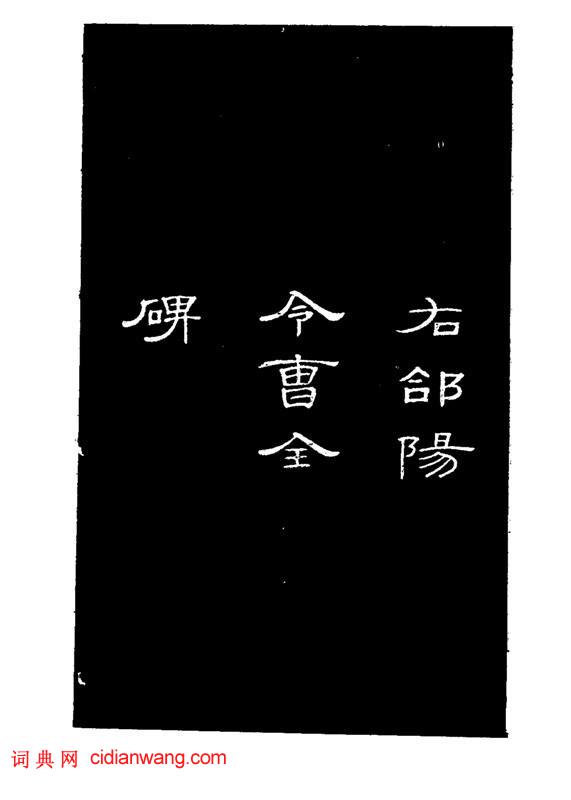 右郃陽
令曹全
碑
词典网 cidianwang.com